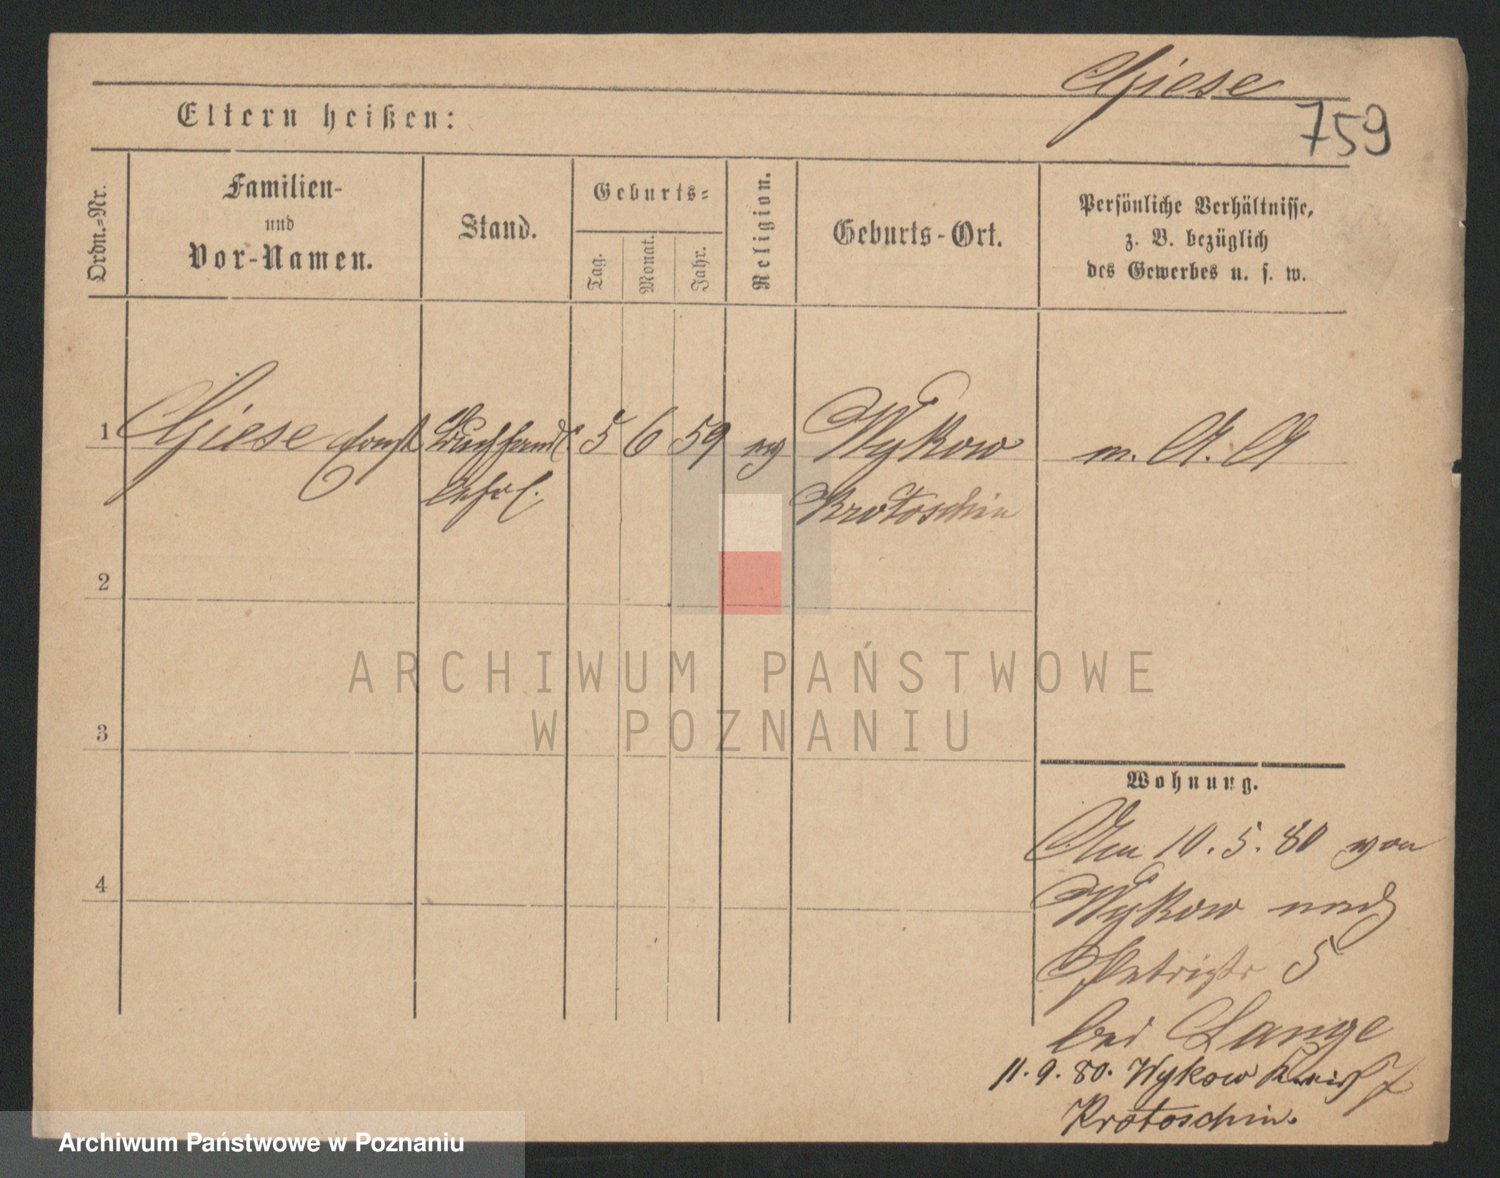 Giese
759
Eltern heißen:
Ordn.-Nr.
Familien-
und
Vor-Namen.
Stand.
Geburts-
Tag.
Monat.
Jahr.
Religion.
Geburts-Ort.
Persönliche Verhältnisse,
z. B. bezüglich
des Gewerbes u. s. w.
1 Giese 5 6 59 Wykow m. A. A
Krotoschin
2
3
4
ARCHIWUM PAŃSTWOWE
W POZNANIU
Wohnung.
Am 10.5.80 von
Wykow nach
Petristr 5
bei Lange
11.9.80. Wykow Kreis
Krotoschin.
Archiwum Państwowe w Poznaniu